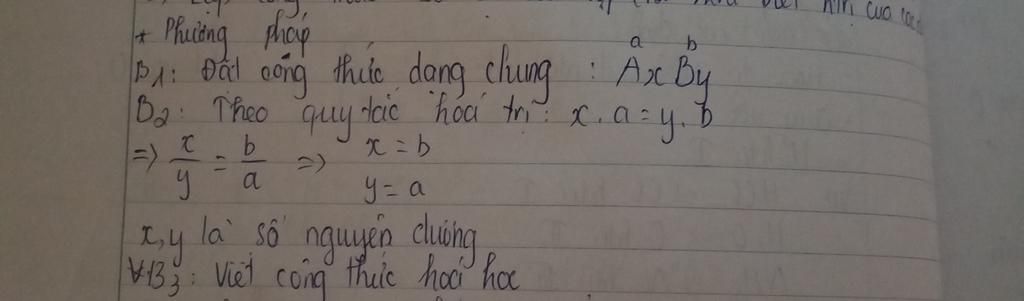 * Phương pháp
a b
B1: Đặt công thức dạng chung : AxBy
B2: Theo quy tắc hoá trị: x. a = y. b
=> x/y = b/a => x = b
y = a
x, y là số nguyên dương
B3: Viết công thức hoá học